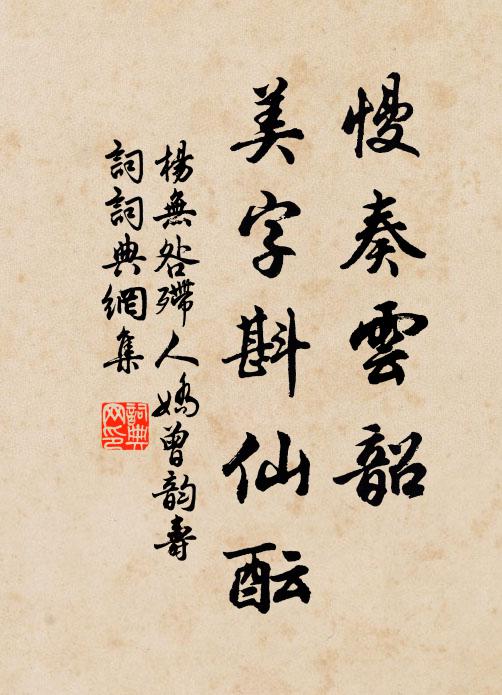 慢奏雲韶
美字斟仙酝
楊無咎殢人嬌曾韵壽
詞詞典網集
詞典网印